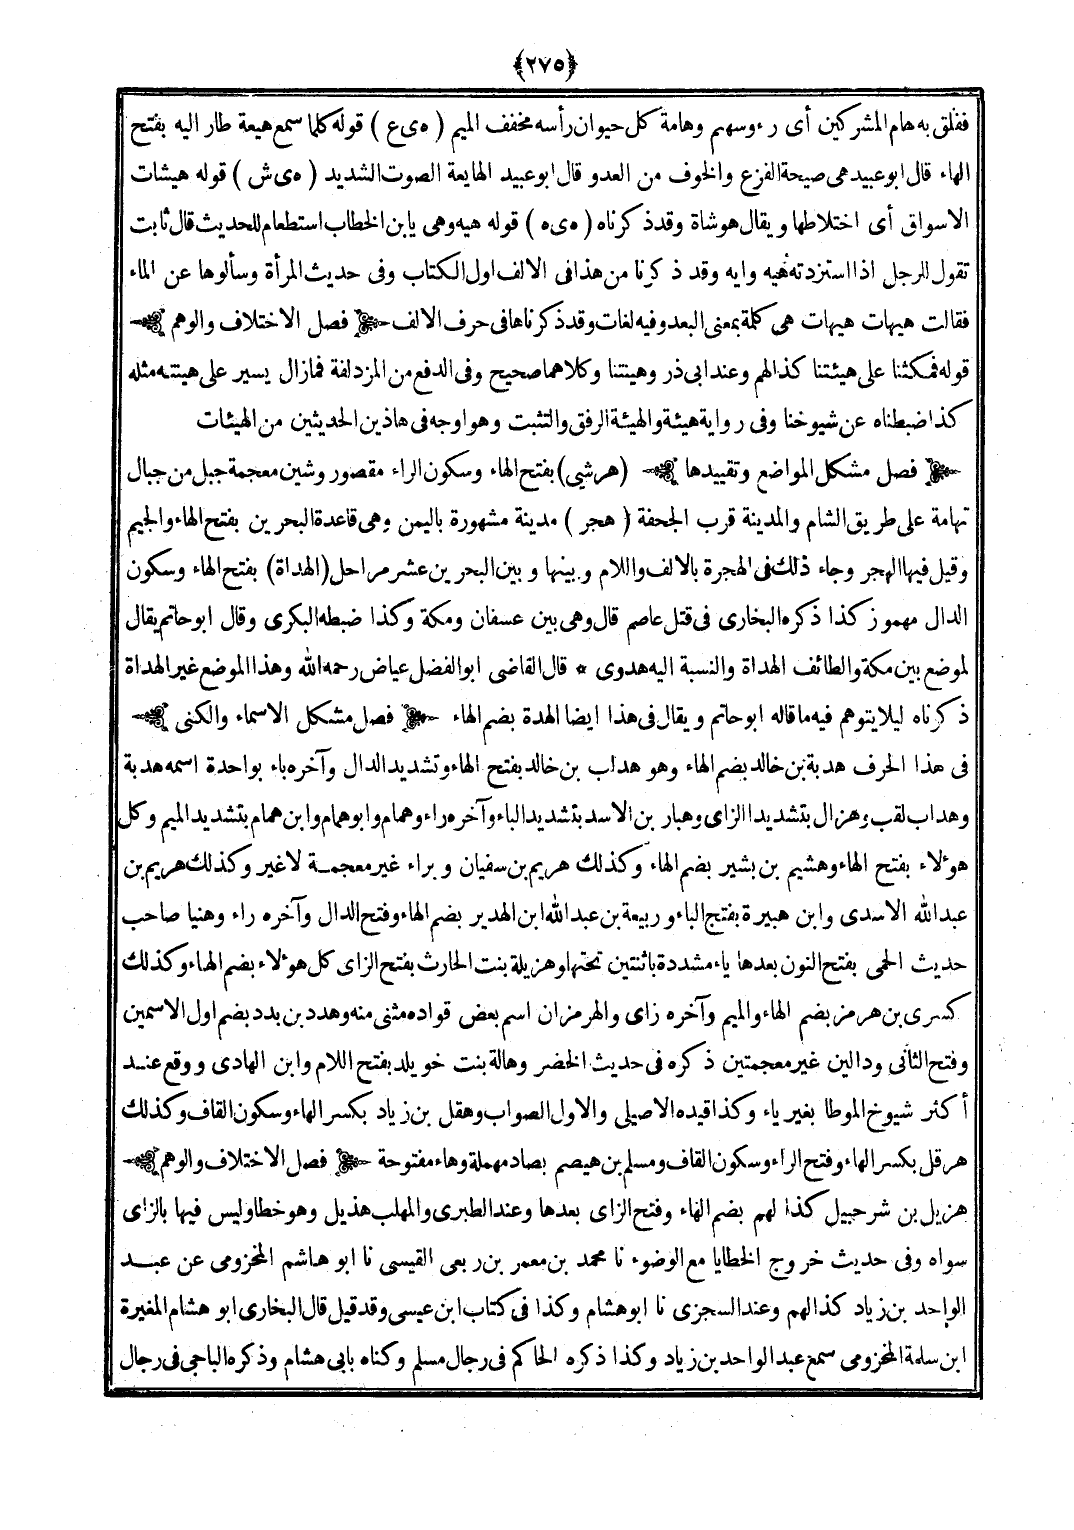 ﴿٢٧٥﴾
ففلق به هام المشركين أى رءوسهم وهامة كل حيوان رأسه مخفف الميم ( ه ى ع ) قوله كلما سمع هيعة طار اليه بفتح
الهاء قال ابو عبيد هى صيحة الفزع والخوف من العدو قال ابو عبيد الهايعة الصوت الشديد ( ه ى ش ) قوله هيشات
الاسواق أى اختلاطها ويقال هوشاة وقد ذكرناه ( ه ى ه ) قوله هيه وهى يابن الخطاب استطعام للحديث قال ثابت
تقول للرجل اذا استزدته هيه وايه وقد ذكرنا من هذا فى الالف اول الكتاب وفى حديث المرأة وسألوها عن الماء
فقالت هيهات هيهات هى كلمة بمعنى البعد وفيه لغات وقد ذكرناها فى حرف الالف فصل الاختلاف والوهم
قوله فمكثنا على هيئتنا كذا لهم وعند ابى ذر وهينتنا وكلاهما صحيح وفى الدفع من المزدلفة فمازال يسير على هينته مثله
كذا ضبطناه عن شيوخنا وفى رواية هيئة والهيئة الرفق والتثبت وهو اوجه فى هاذين الحديثين من الهيئات
فصل مشكل المواضع وتقييدها (هرشى) بفتح الهاء وسكون الراء مقصور وشين معجمة جبل من جبال
تهامة على طريق الشام والمدينة قرب الجحفة ( هجر ) مدينة مشهورة باليمن وهى قاعدة البحرين بفتح الهاء والجيم
وقيل فيها الهجر وجاء ذلك فى الهجرة بالالف واللام وبينها وبين البحرين عشر مراحل (الهداة) بفتح الهاء وسكون
الدال مهموز كذا ذكره البخارى فى قتل عاصم قال وهى بين عسفان ومكة وكذا ضبطه البكرى وقال ابو حاتم يقال
لموضع بين مكة والطائف الهداة والنسبة اليه هدوى * قال القاضى ابو الفضل عياض رحمه الله وهذا الموضع غير الهداة
ذكرناه ليلا يتوهم فيه ما قاله ابو حاتم ويقال فى هذا ايضا الهدة بضم الهاء فصل مشكل الاسماء والكنى
فى هذا الحرف هدبة بن خالد بضم الهاء وهو هداب بن خالد بفتح الهاء وتشديد الدال وآخره باء بواحدة اسمه هدبة
وهداب لقب وهزال بتشديد الزاى وهبار بن الاسد بتشديد الباء وآخره راء وهمام وابو همام وابن همام بتشديد الميم وكل
هؤلاء بفتح الهاء وهشيم بن بشير بضم الهاء وكذلك هريم بن سفيان وبراء غير معجمة لاغير وكذلك هريم بن
عبد الله الاسدى وابن هبيرة بفتح الباء وربيعة بن عبد الله ابن الهدير بضم الهاء وفتح الدال وآخره راء وهنيا صاحب
حديث الحمى بفتح النون بعدها ياء مشددة باثنتين تحتها وهزيلة بنت الحارث بفتح الزاى كل هؤلاء بضم الهاء وكذلك
كسرى بن هرمز بضم الهاء والميم وآخره زاى والهرمزان اسم بعض قواده مثنى منه وهدد بن بدد بضم اول الاسمين
وفتح الثانى ودالين غير معجمتين ذكره فى حديث الخضر وهالة بنت خويلد بفتح اللام وابن الهادى ووقع عند
أكثر شيوخ الموطا بغير ياء وكذا قيده الاصيلى والاول الصواب وهقل بن زياد بكسر الهاء وسكون القاف وكذلك
هرقل بكسر الهاء وفتح الراء وسكون القاف ومسلم بن هيصم بصاد مهملة وهاء مفتوحة فصل الاختلاف والوهم
هزيل بن شرحبيل كذا لهم بضم الهاء وفتح الزاى بعدها وعند الطبرى والمهلب هذيل وهو خطا وليس فيها بالزاى
سواه وفى حديث خروج الخطايا مع الوضوء نا محمد بن معمر بن ربعى القيسى نا ابو هاشم المخزومى عن عبد
الواحد بن زياد كذا لهم وعند السجزى نا ابو هشام وكذا فى كتاب ابن عيسى وقد قيل قال البخارى ابو هشام المغيرة
ابن سلمة المخزومى سمع عبد الواحد بن زياد وكذا ذكره الحاكم فى رجال مسلم وكناه بابى هشام وذكره الباجى فى رجال